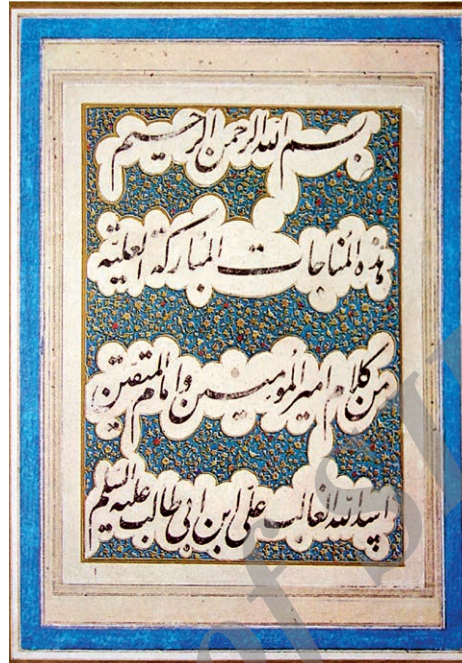 بسم الله الرحمن الرحیم
هذه المناجات المبارکة العلیّة
من کلام امیر المؤمنین و امام المتقین
اسد الله الغالب علی ابن ابی طالب علیه السلم
of SI